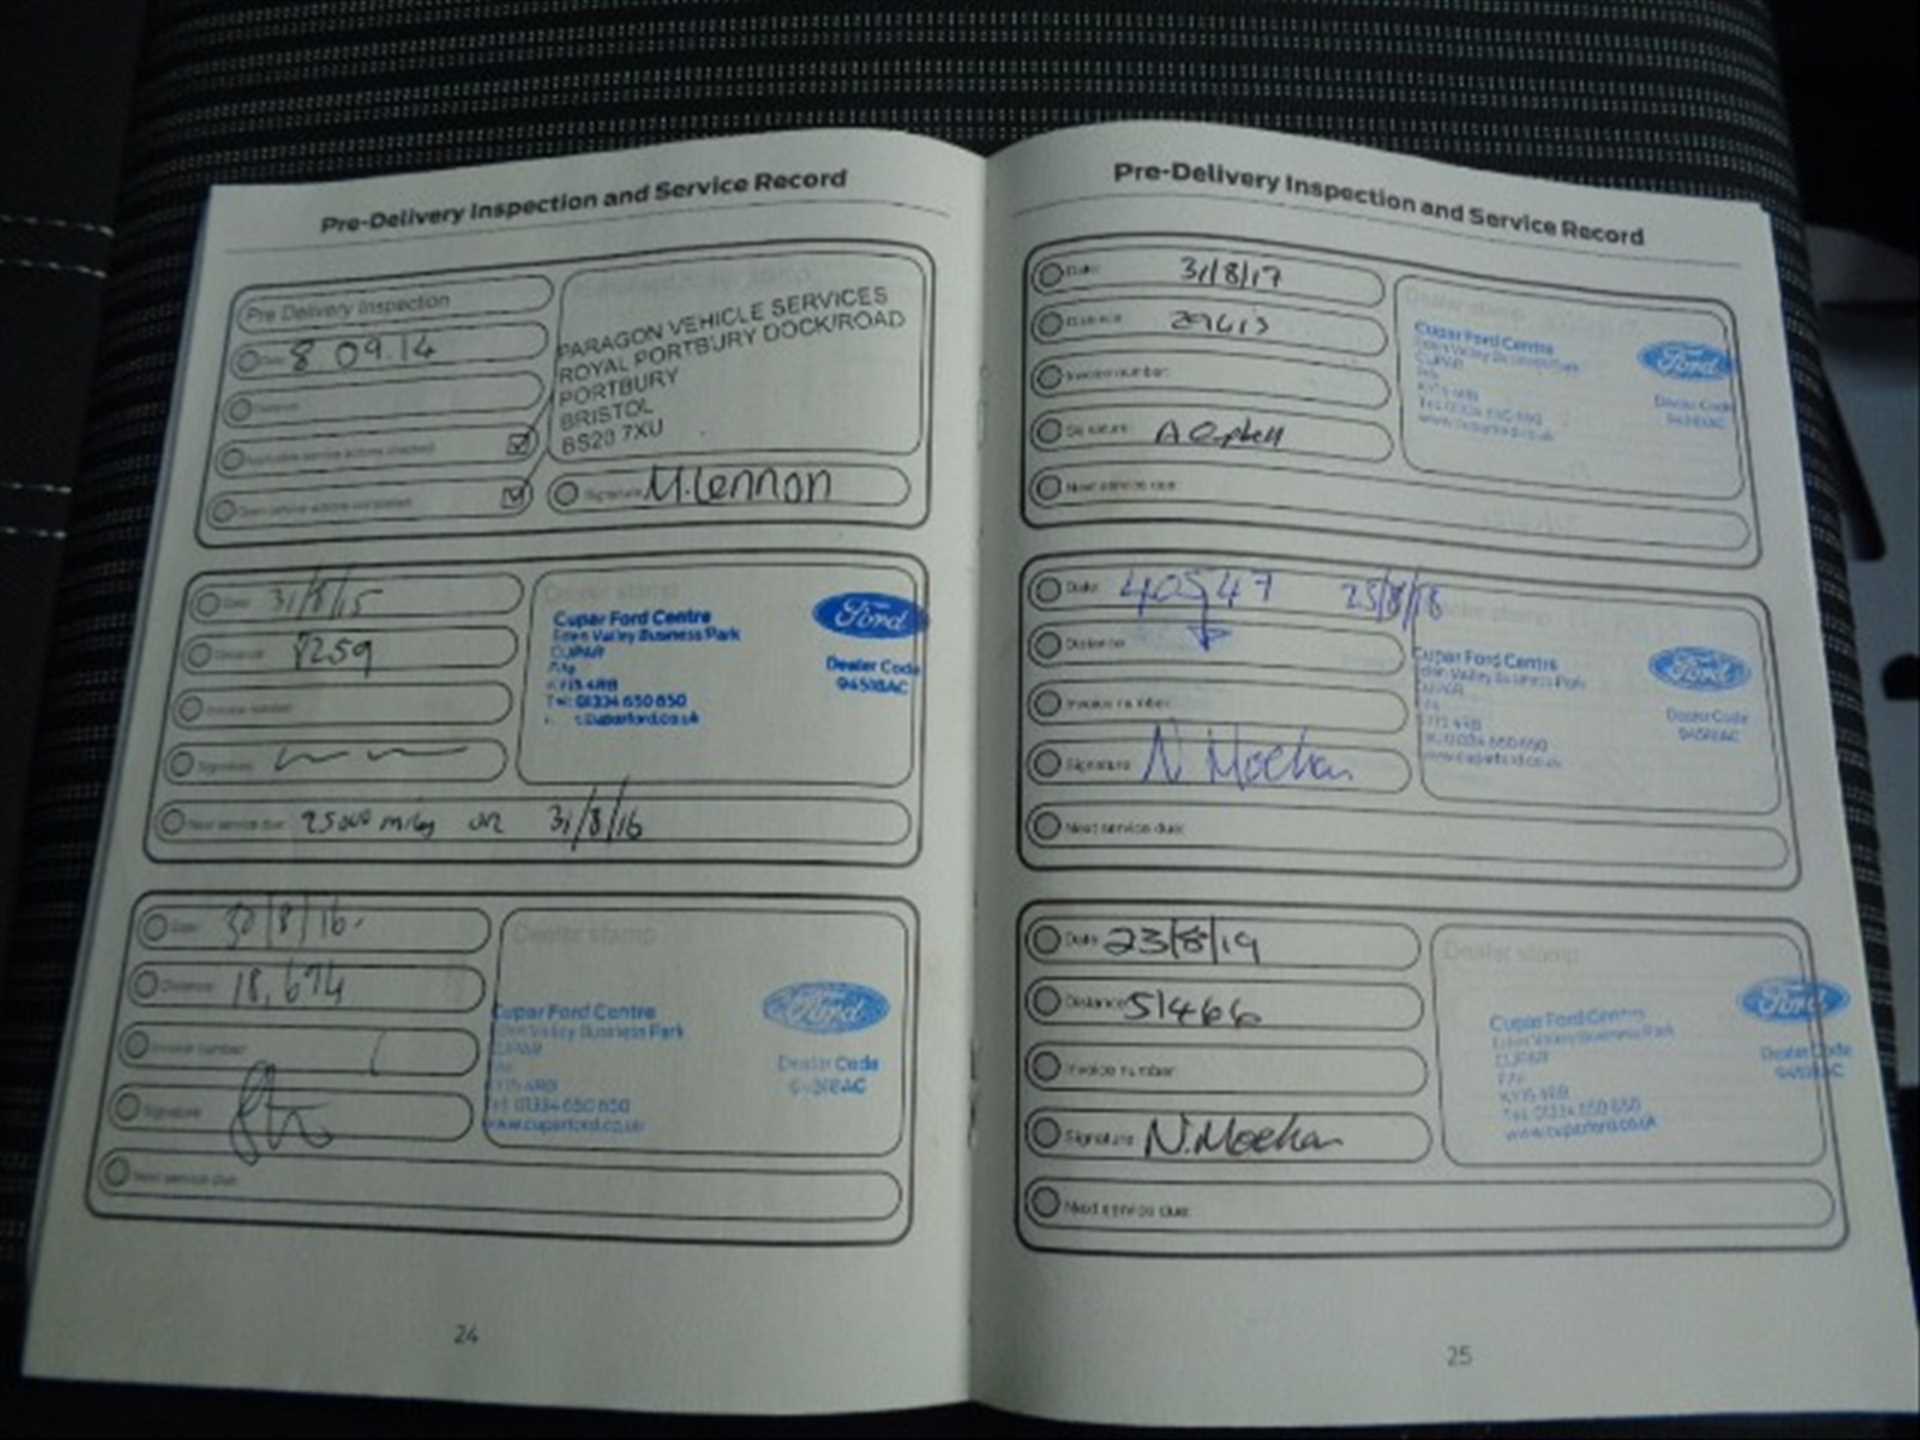 Pre-Delivery Inspection and Service Record
Pre Delivery Inspection
Date: 8 09.14
Distance:
Applicable service actions checked:
Open service actions completed:
PARAGON VEHICLE SERVICES
ROYAL PORTBURY DOCK/ROAD
PORTBURY
BRISTOL
BS20 7XU
Signature: M.Lennon
Date: 31/8/15
Distance: 8259
Invoice number:
Signature:
Next service due: 25000 miles or 31/8/16
Dealer stamp
Cupar Ford Centre
Eden Valley Business Park
CUPAR
Fife
KY15 4RB
Tel: 01334 650650
cuparford.co.uk
Ford
Dealer Code
94518AC
Date: 30/8/16.
Distance: 18,674
Invoice number:
Signature:
Next service due:
Dealer stamp
Cupar Ford Centre
Eden Valley Business Park
CUPAR
Fife
KY15 4RB
Tel: 01334 650650
www.cuparford.co.uk
Ford
Dealer Code
94518AC
24
Pre-Delivery Inspection and Service Record
Date: 31/8/17
Distance: 29613
Invoice number:
Signature:
Next service due:
Dealer stamp
Cupar Ford Centre
Eden Valley Business Park
CUPAR
Fife
KY15 4RB
Tel: 01334 650650
www.cuparford.co.uk
Ford
Dealer Code
94518AC
Date: 40547 25/8/18
Distance:
Invoice number:
Signature: N Meehan
Next service due:
Dealer stamp
Cupar Ford Centre
Eden Valley Business Park
CUPAR
Fife
KY15 4RB
Tel: 01334 650650
www.cuparford.co.uk
Ford
Dealer Code
94518AC
Date: 23/8/19
Distance: 51466
Invoice number:
Signature: N.Meehan
Next service due:
Dealer stamp
Cupar Ford Centre
Eden Valley Business Park
CUPAR
Fife
KY15 4RB
Tel: 01334 650650
www.cuparford.co.uk
Ford
Dealer Code
94518AC
25